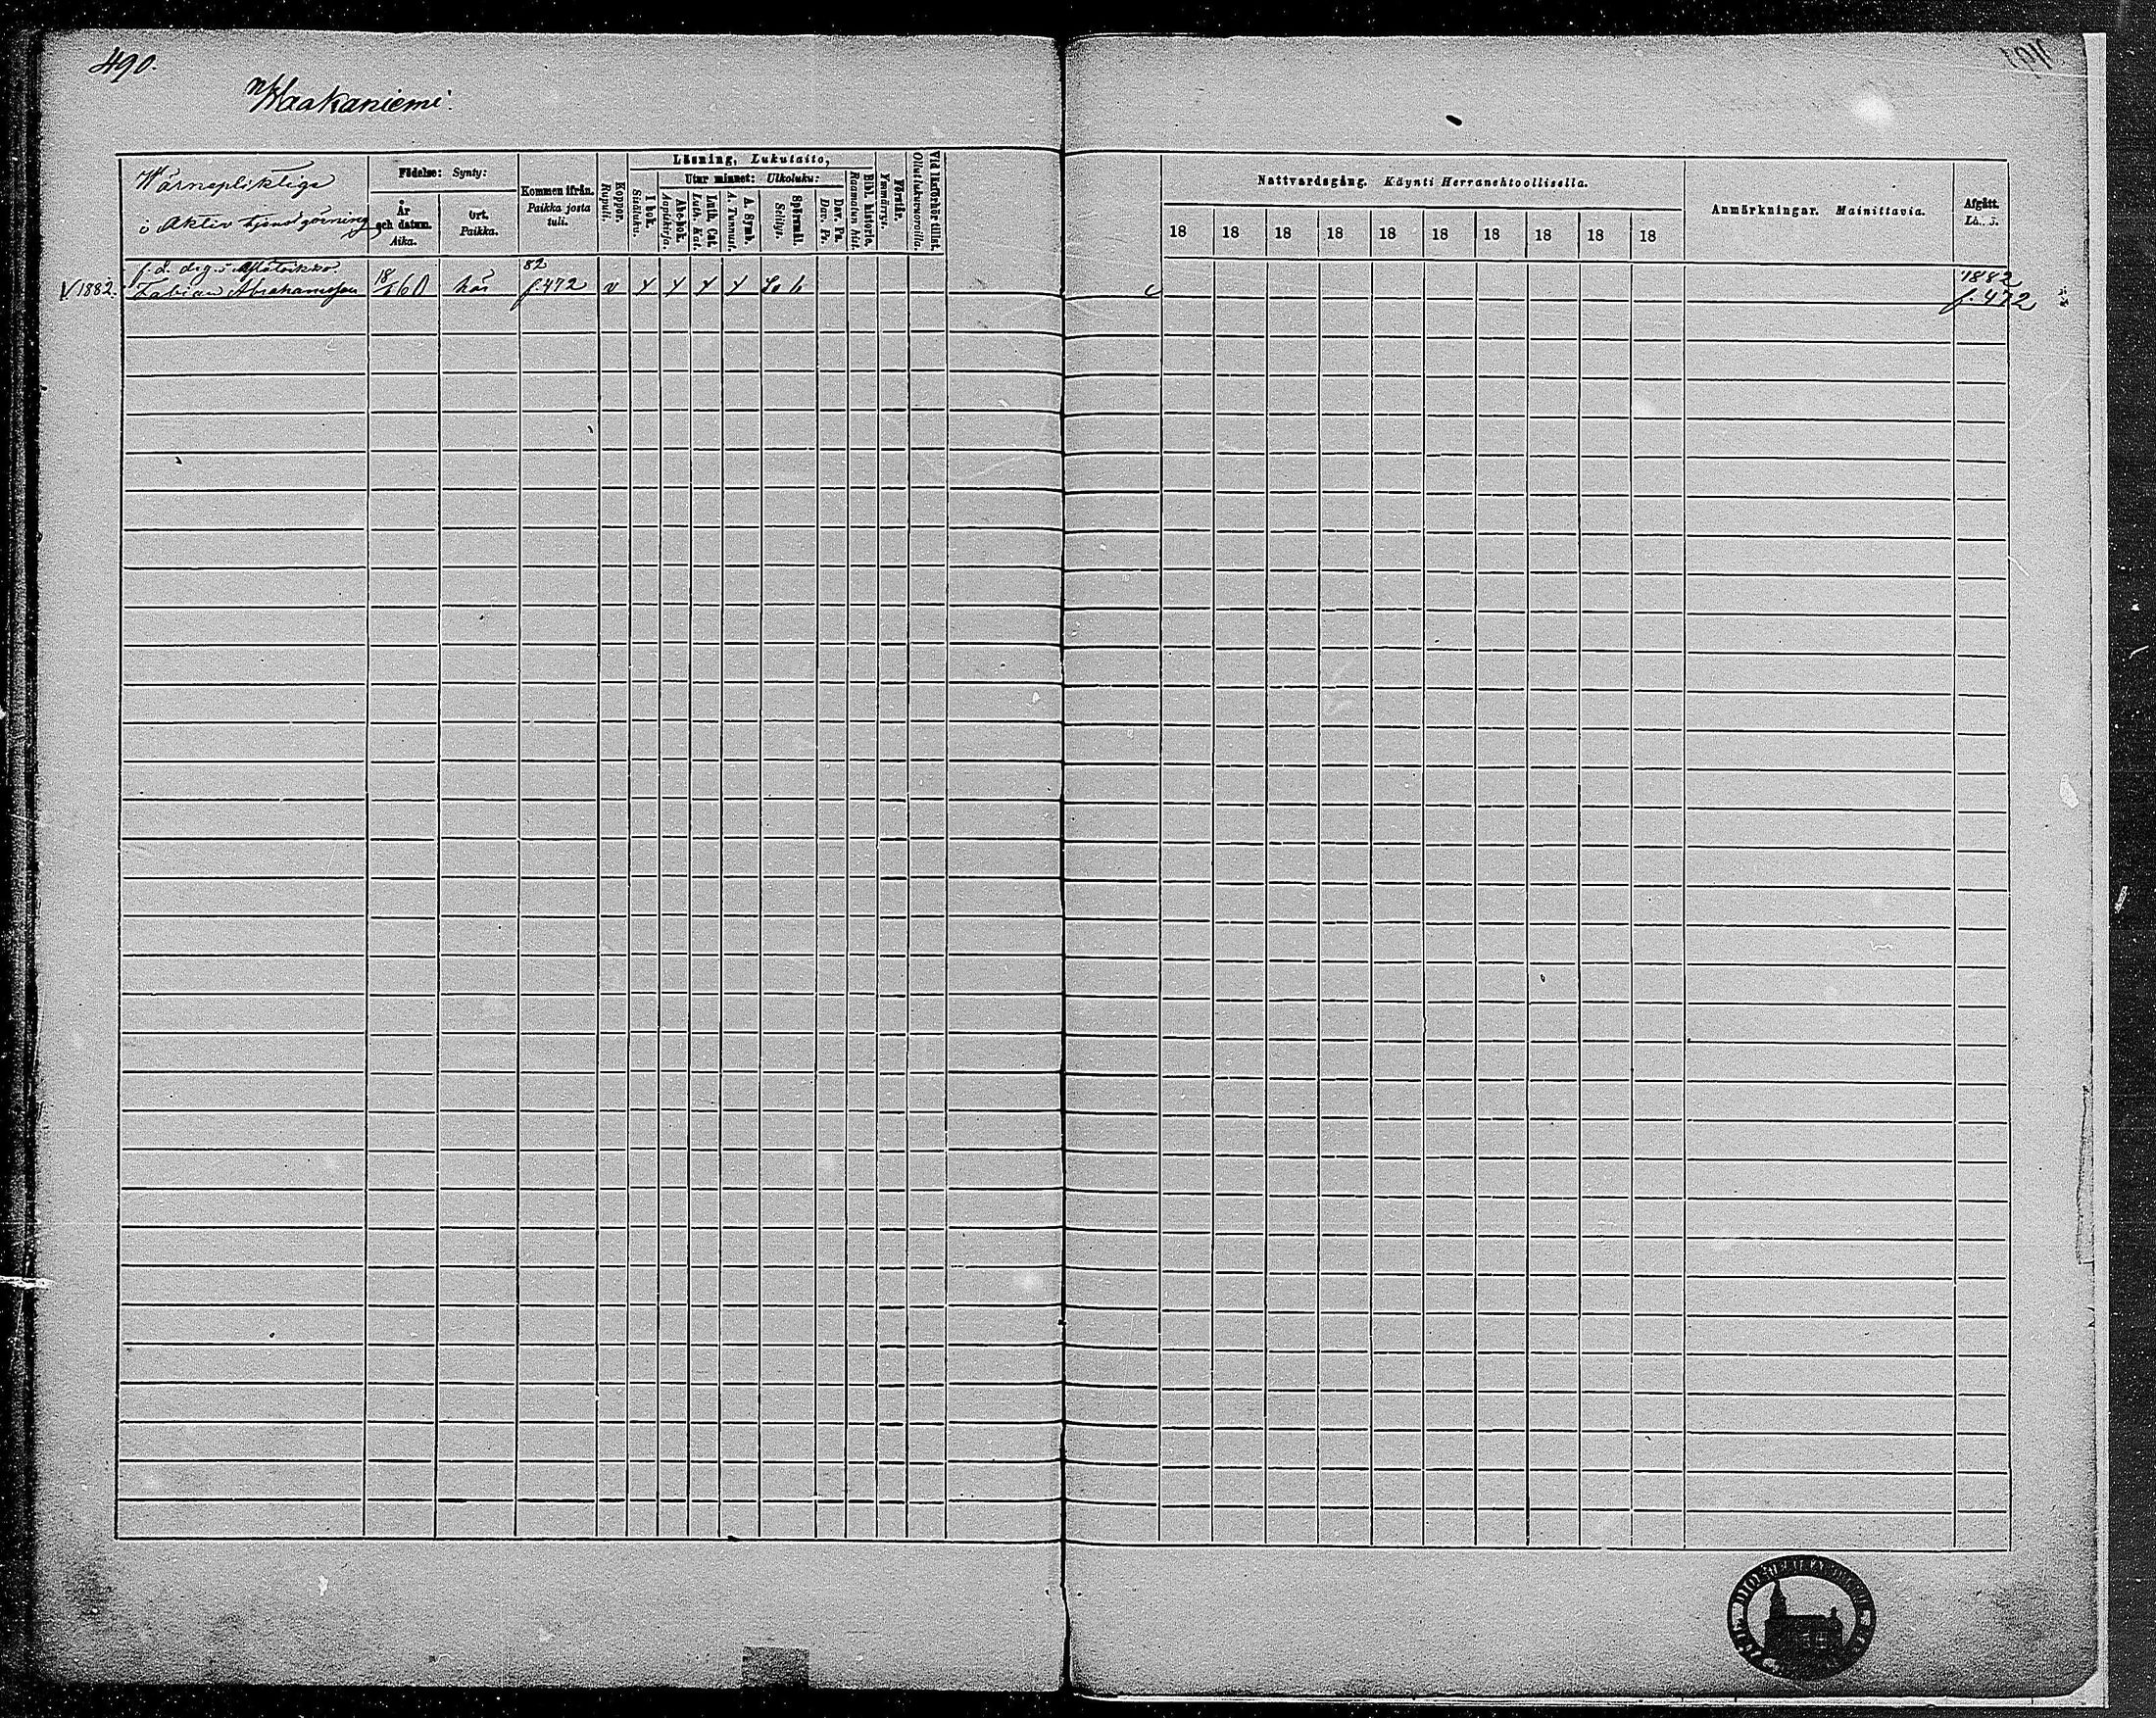 490.
Waakaniemi.
Wärnepliktige
i Aktiv tjenstgörning
Födelse: Synty:
År och datum.
Aika.
Ort.
Paikka.
Kommen ifrån.
Paikka josta tuli.
Koppor.
Rupuli.
Läsning, Lukutaito,
I bok.
Sisäluku.
Utur minnet: Ulkoluku:
Abc-bok.
Aapiskirja.
Luth. Cat.
Luth. Kat.
A. Symb.
A. Tunnust.
Spörsmål.
Selitys.
Dav. Ps.
Dav. Ps.
Bibl. historia.
Raamatun hist.
Förstår.
Ymmärrys.
Vid läsförhör tillst.
Ollut lukuvuoroilla.
Nattvardsgång. Käynti Herranehtoollisella.
18 18 18 18 18 18 18 18 18 18
Anmärkningar. Mainittavia.
Afgått.
Lä.. s.
f. d. drg.
82
1882
V. 1882. Fabian Abrahamsson 18 60 här f. 472 v f. 472